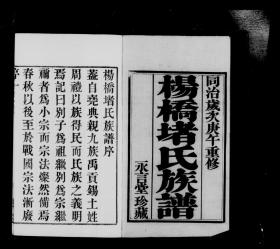 同治歲次庚午重修
楊橋堵氏族譜
永言堂珍藏
楊橋堵氏族譜序
蓋自堯典親九族禹貢錫土姓
周禮以族得民而氏族之義明
焉記曰別子為祖繼別為宗繼
禰者為小宗而宗法燦然備焉
春秋以後至於戰國宗法漸廢